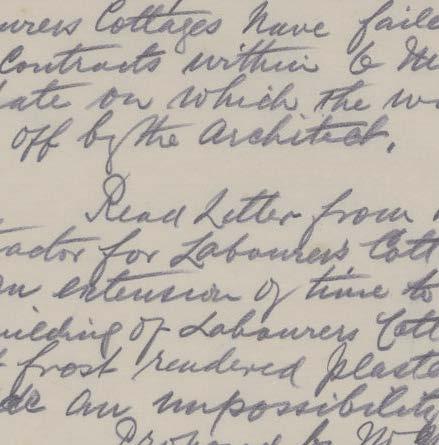 urers Cottages have faile
Contracts within 6 M
date on which the w
off by the Architect.
Read Letter from
tractor for Labourers Cott
an extension of time to
uilding of Labourers Cott
t frost rendered plaste
de an impossibility
Proposed by